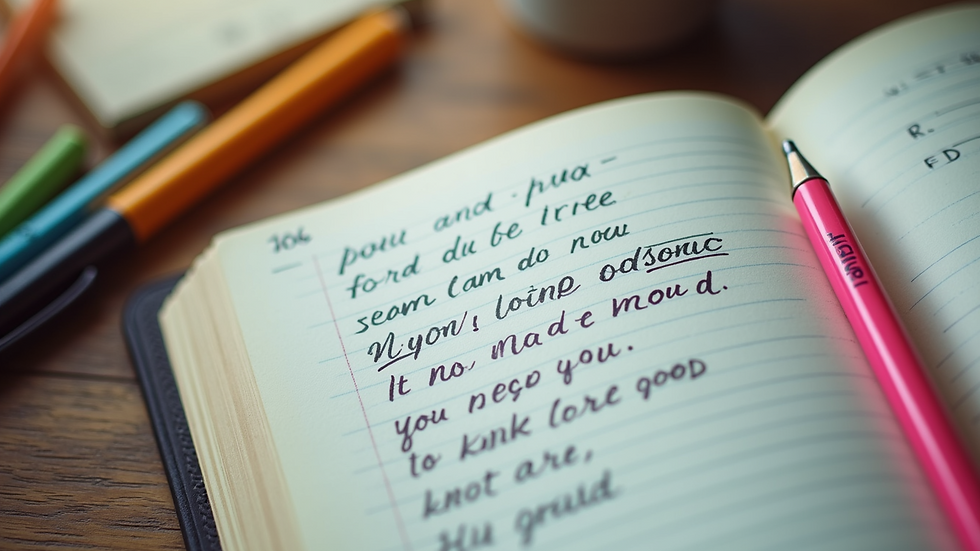 306
pou and pua -
ford du be Irree
seam Cam do now
Nyon's loinp odsonic
It no. made moud.
you neço you.
to kink lore good
knot are,
Hu gruld
R.
FD